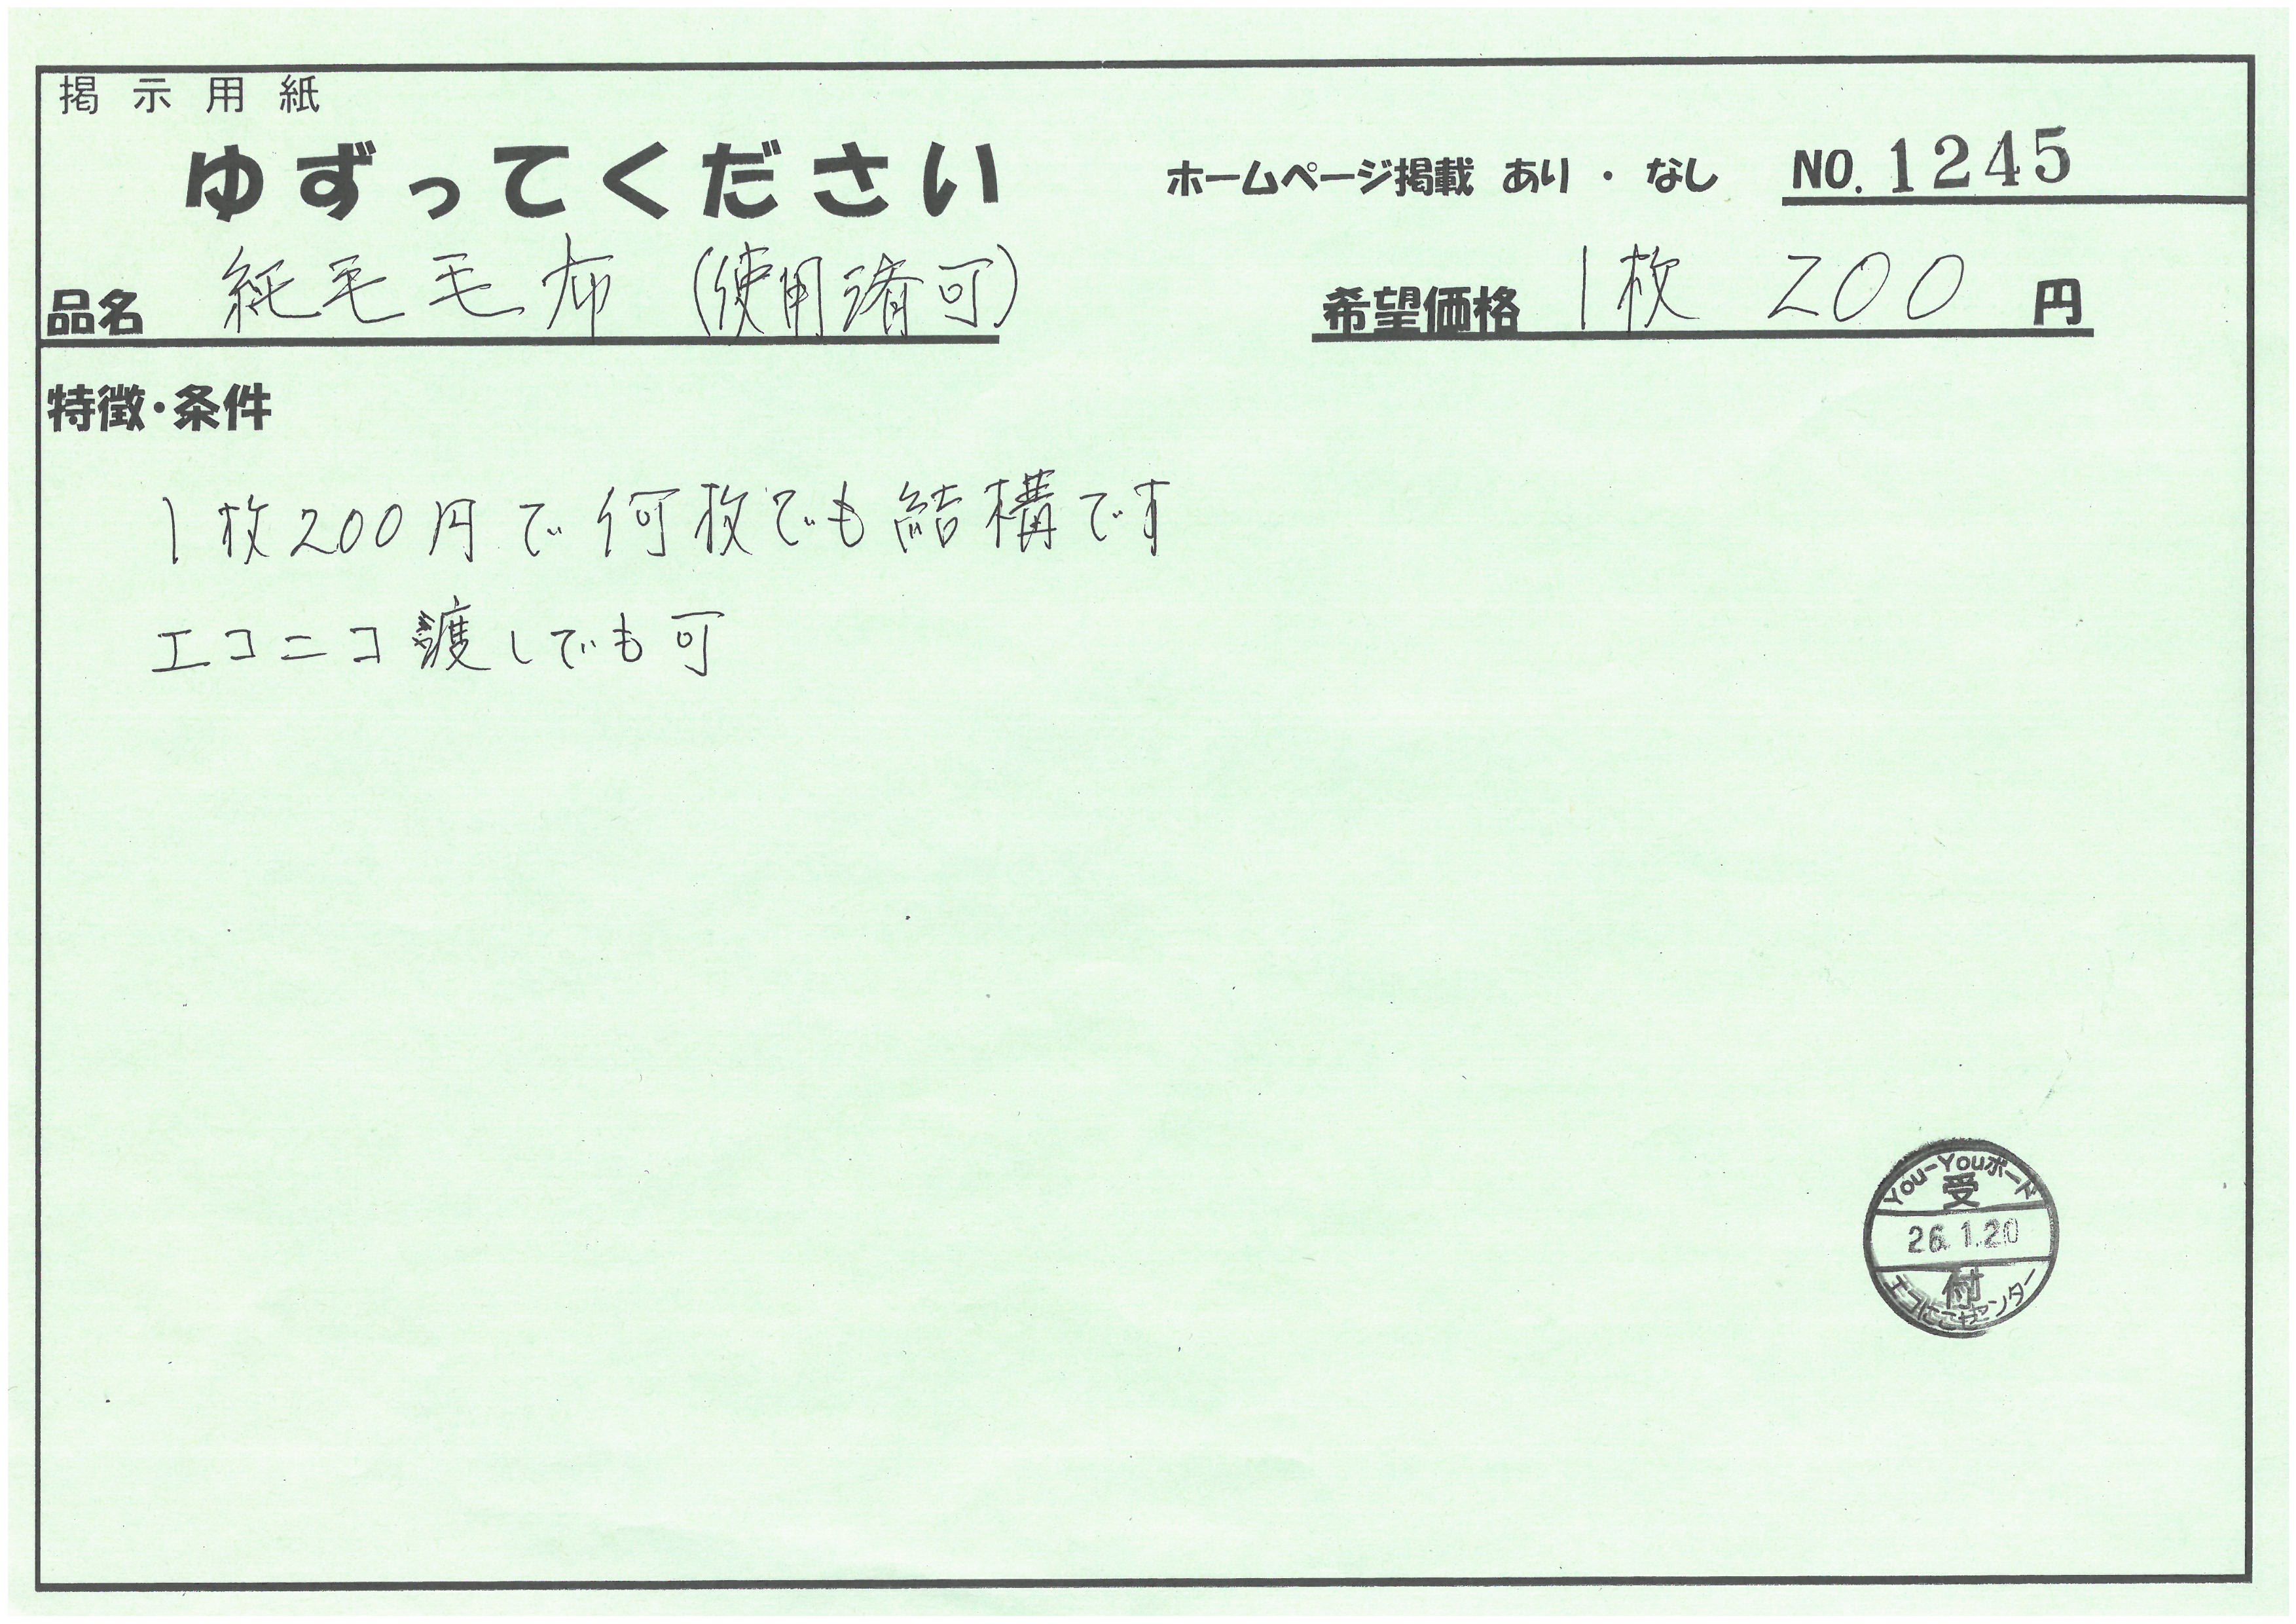 掲示用紙
ゆずってください ホームページ掲載 あり ・ なし NO. 1245
品名 純毛毛布 (使用済可) 希望価格 1枚 200 円
特徴・条件
1枚200円で何枚でも結構です
エコニコ渡しでも可
You-Youボード
受
26.1.20
付
エコにこセンター